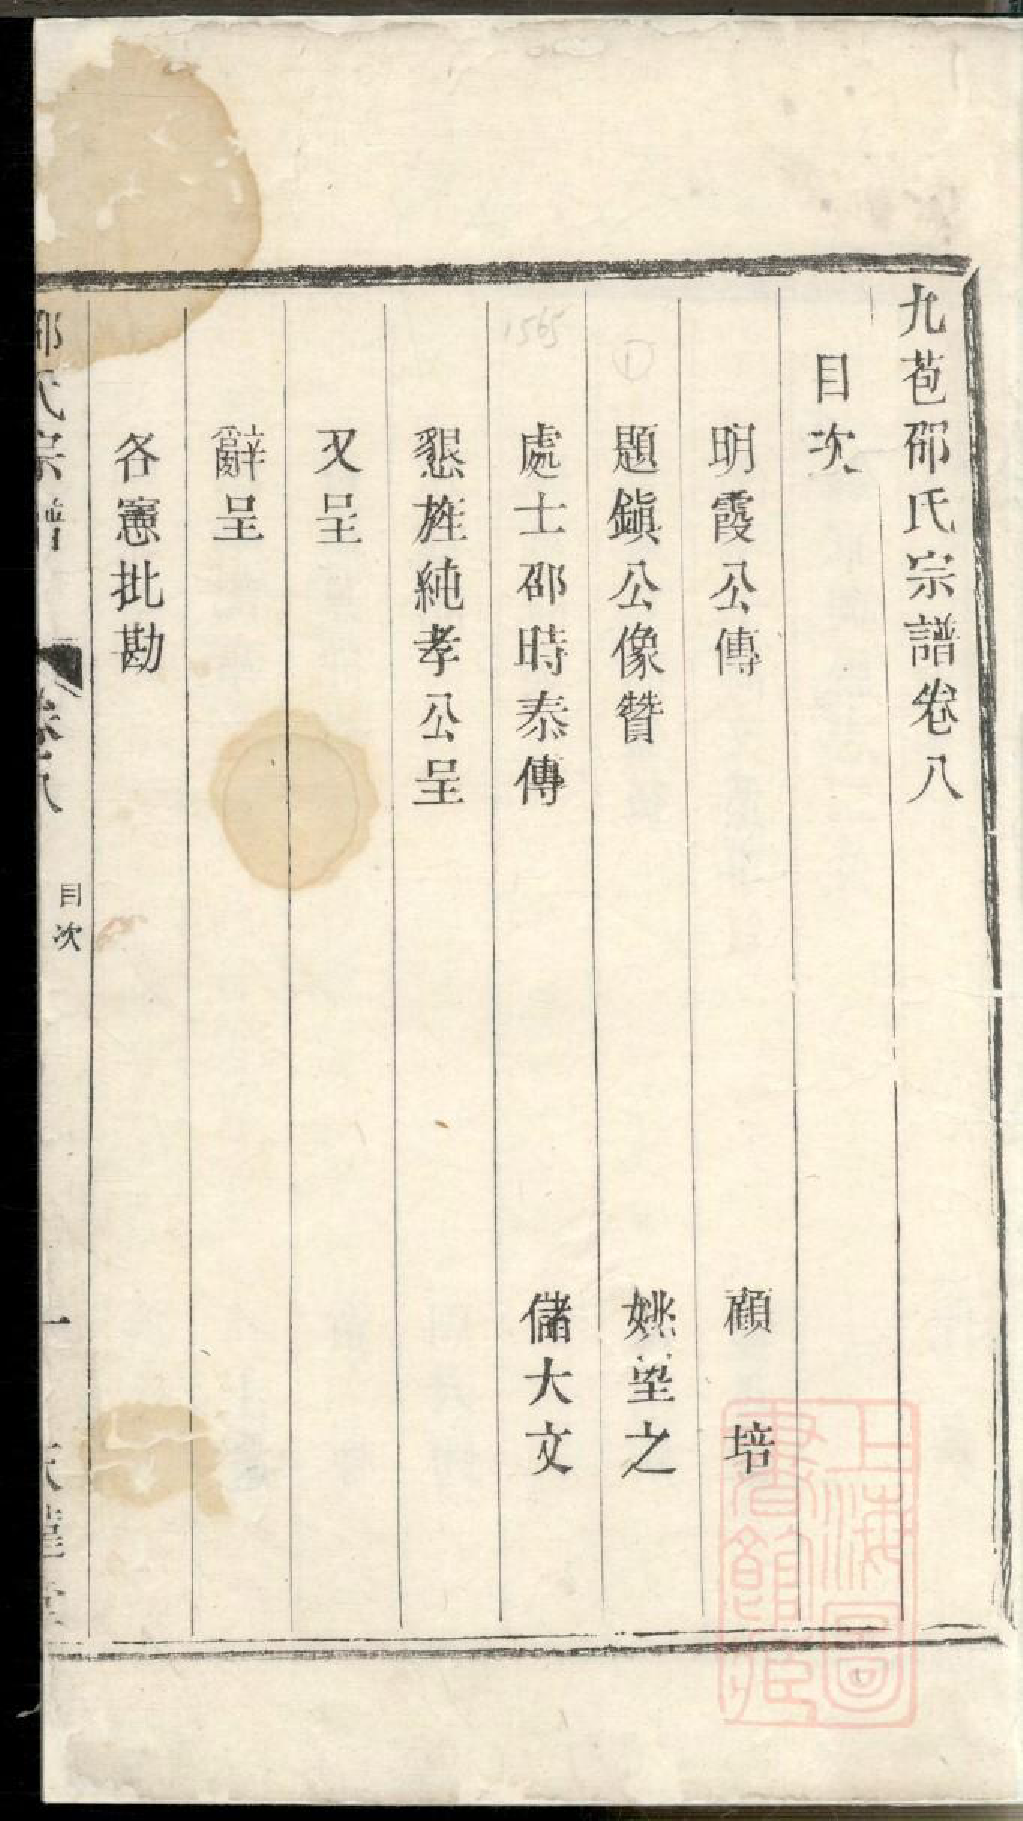 九苞邵氏宗譜卷八
目次
明霞公傳 顧 培
題鎭公像贊 姚望之
處士邵時泰傳 儲大文
懇旌純孝公呈
又呈
辭呈
各憲批勘
邵氏宗譜 卷八 目次 一
1565
①
上海圖書館藏